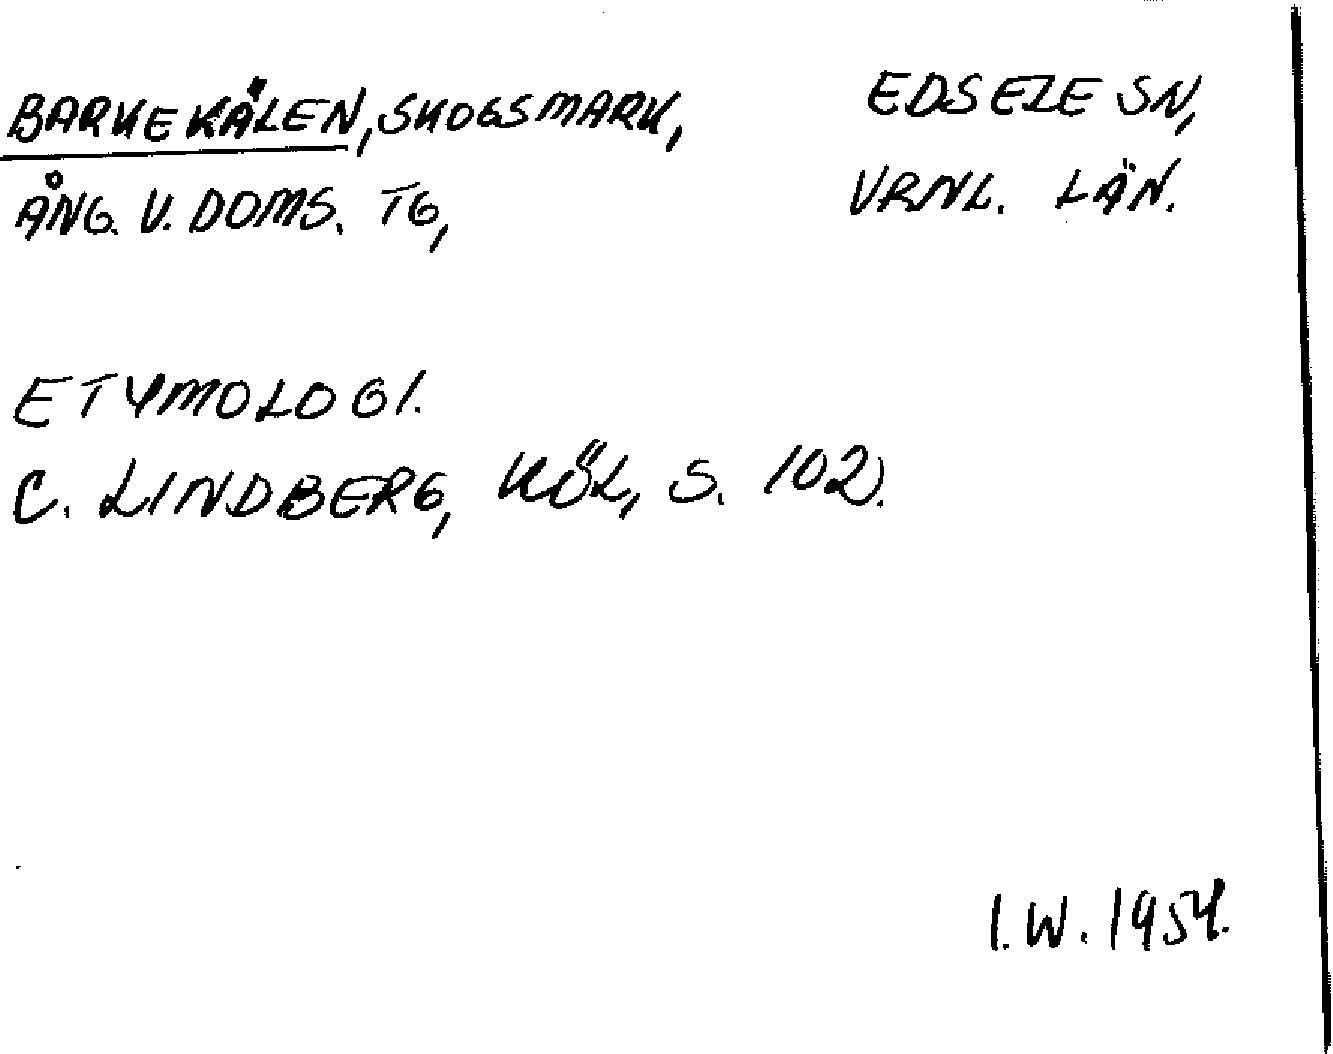 BARKEKÄLEN, SKOGSMARK,
EDSELE SN,
ÅNG. V. DOMS. TG,
VRNL. LÄN.
ETYMOLOGI.
C. LINDBERG, KÖL, S. 102.
I.W. 1954.